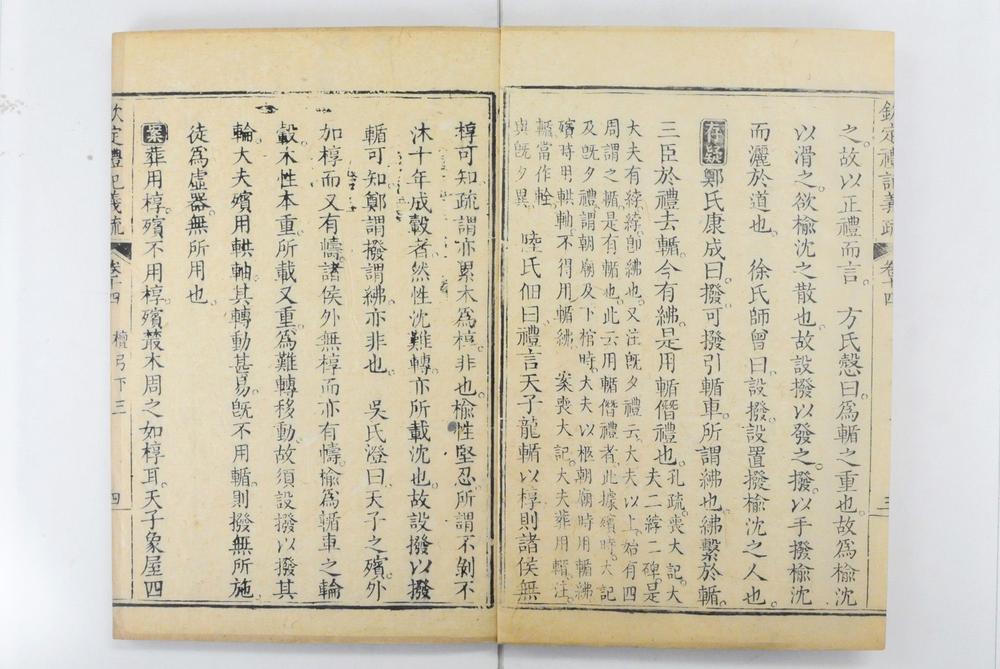 欽定禮記義疏 卷十四 三
之故以正禮而言。 方氏慤曰。爲輴之重也。故爲榆沈
以滑之。欲榆沈之散也。故設撥以發之。撥。以手撥榆沈
而灑於道也。 徐氏師曾曰。設撥。設置撥榆沈之人也。
存疑鄭氏康成曰。撥可撥引輴車。所謂紼也。紼繫於輴。
三臣於禮去輴。今有紼。是用輴僭禮也。孔疏。喪大記。大
夫二綍二碑。是
大夫有綍。綍即紼也。又注既夕禮云。大夫以上。始有四
周。謂之輴。是有輴也。此云用輴僭禮者。此據殯時。大記
及既夕禮。謂朝廟及下棺時。大夫以柩朝廟時用輴紼。
殯時用輁軸。不得用輴紼。 案喪大記。大夫葬用輴。注
輴當作輇
與既夕異 陸氏佃曰。禮言天子龍輴以椁。則諸侯無
椁可知。疏謂亦累木爲椁。非也。榆性堅忍。所謂不剝不
沐十年成轂者。然性沈難轉。亦所載沈也。故設撥以撥
輴可知。鄭謂撥謂紼。亦非也。 吳氏澄曰。天子之殯。外
加椁而又有幬。諸侯外無椁而亦有幬。榆爲輴車之輪
轂。木性本重。所載又重。爲難轉移動。故須設撥以撥其
輪。大夫殯用輁軸。其轉動甚易。既不用輴。則撥無所施。
徒爲虛器。無所用也。
案葬用椁。殯不用椁。殯叢木周之如椁耳。天子象屋四
欽定禮記義疏 卷十四 檀弓下三 四